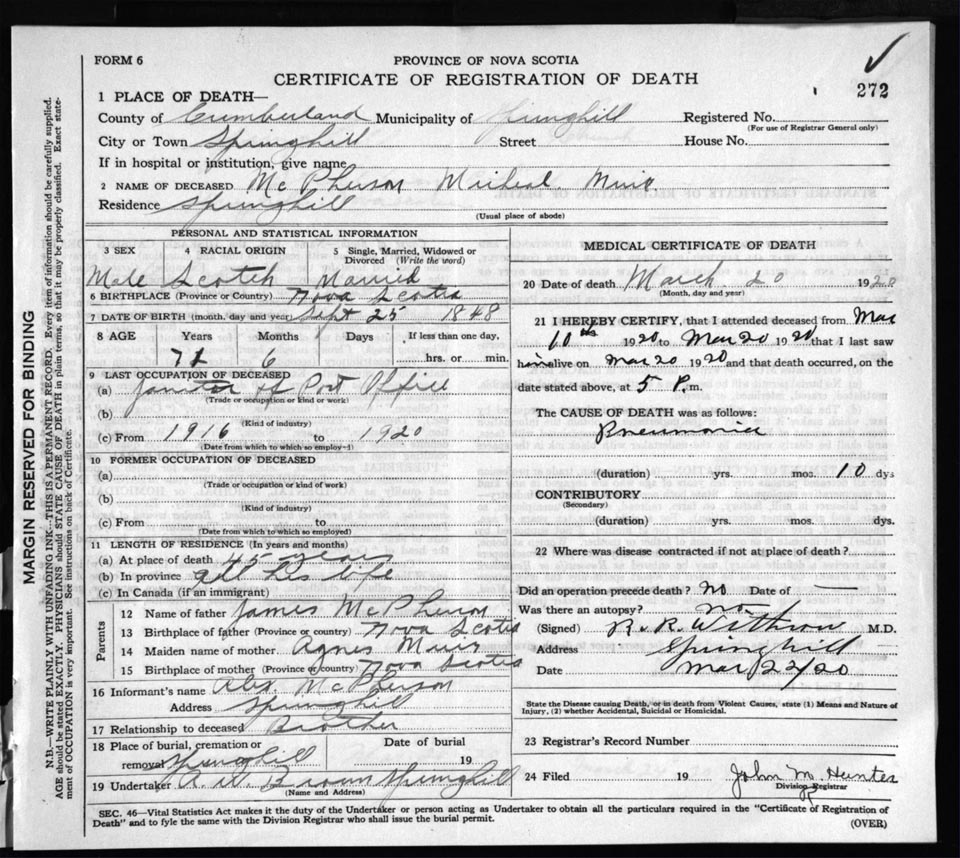 FORM 6
PROVINCE OF NOVA SCOTIA
CERTIFICATE OF REGISTRATION OF DEATH
272
1 PLACE OF DEATH—
County of Cumberland Municipality of Springhill Registered No.
(For use of Registrar General only)
City or Town Springhill Street House No.
If in hospital or institution, give name
2 NAME OF DECEASED McPherson Micheal Muir
Residence Springhill
(Usual place of abode)
PERSONAL AND STATISTICAL INFORMATION
3 SEX 4 RACIAL ORIGIN 5 Single, Married, Widowed or Divorced (Write the word)
Male Scotch Married
6 BIRTHPLACE (Province or Country) Nova Scotia
7 DATE OF BIRTH (month, day and year) Sept 25 1848
8 AGE Years Months Days If less than one day,
71 6 hrs. or min.
9 LAST OCCUPATION OF DECEASED
(a) Janitor of Post Office
(Trade or occupation or kind of work)
(b)
(Kind of industry)
(c) From 1916 to 1920
(Date from which to which so employ-)
10 FORMER OCCUPATION OF DECEASED
(a)
(Trade or occupation or kind of work)
(b)
(Kind of industry)
(c) From to
(Date from which to which so employed)
11 LENGTH OF RESIDENCE (In years and months)
(a) At place of death 45 years
(b) In province all his life
(c) In Canada (if an immigrant)
Parents
12 Name of father James McPherson
13 Birthplace of father (Province or country) Nova Scotia
14 Maiden name of mother Agnes Muir
15 Birthplace of mother (Province or country) Nova Scotia
16 Informant's name Alex. McPherson
Address Springhill
17 Relationship to deceased Brother
18 Place of burial, cremation or Date of burial
removal Springhill 19
19 Undertaker A. W. Brown Springhill
(Name and Address)
MEDICAL CERTIFICATE OF DEATH
20 Date of death March 20 1920
(Month, day and year)
21 I HEREBY CERTIFY, that I attended deceased from Mar
10th 1920 to Mar 20 1920 that I last saw
him alive on Mar 20 1920 and that death occurred, on the
date stated above, at 5 P. m.
The CAUSE OF DEATH was as follows:
Pneumonia
(duration) yrs. mos. 10 dys
CONTRIBUTORY
(Secondary)
(duration) yrs. mos. dys.
22 Where was disease contracted if not at place of death?
Did an operation precede death? No Date of —
Was there an autopsy? No
(Signed) R. R. Withrow M.D.
Address Springhill
Date Mar 22/20
State the Disease causing Death, or in death from Violent Causes, state (1) Means and Nature of
Injury, (2) whether Accidental, Suicidal or Homicidal.
23 Registrar's Record Number
24 Filed 19 John M. Hunter
Division Registrar
SEC. 46—Vital Statistics Act makes it the duty of the Undertaker or person acting as Undertaker to obtain all the particulars required in the "Certificate of Registration of
Death" and to fyle the same with the Division Registrar who shall issue the burial permit.
(OVER)
MARGIN RESERVED FOR BINDING
N.B.—WRITE PLAINLY WITH UNFADING INK—THIS IS A PERMANENT RECORD. Every item of information should be carefully supplied.
AGE should be stated EXACTLY. PHYSICIANS should STATE CAUSE OF DEATH in plain terms, so that it may be properly classified. Exact state-
ment of OCCUPATION is very important. See instructions on back of Certificate.